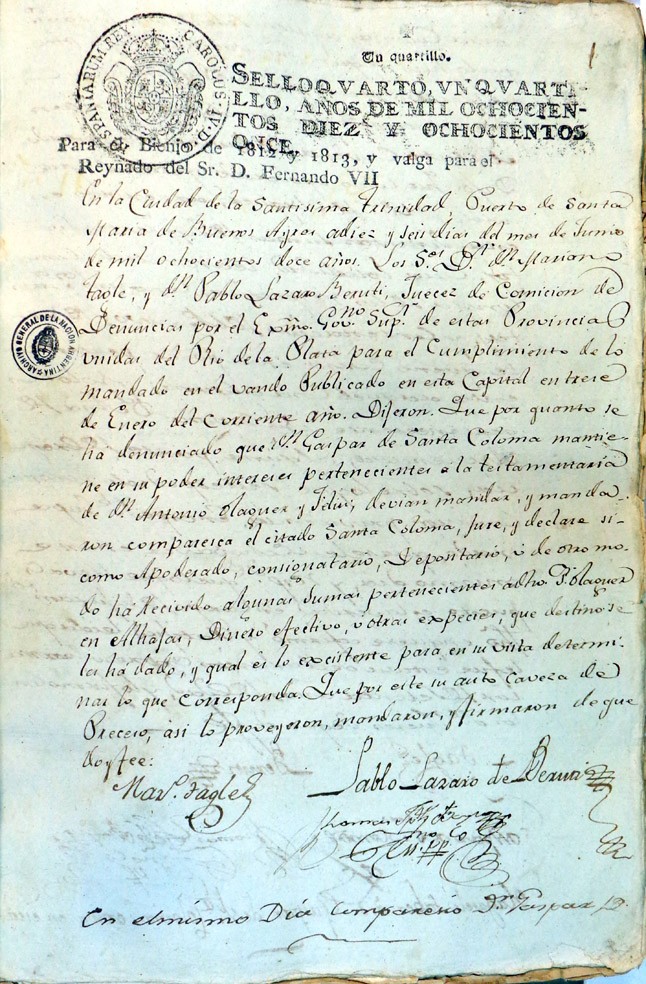 1
Un quartillo.
HISPANIARUM REX CAROLUS IV D
SELLO QVARTO, VN QVARTI-
LLO, AÑOS DE MIL OCHOCIEN-
TOS DIEZ Y OCHOCIENTOS
ONCE.
Para el Bienio de 1812 y 1813, y valga para el
Reynado del Sr. D. Fernando VII
En la Ciudad de la Santisima trinidad, Puerto de Santa
Maria de Buenos Ayres adiez y seis dias del mes de Junio
de mil ochocientos doce años. Los S.res D.r d.n Marian
tagle, y d.n Pablo Lazaro Beruti, Juecez de Comicion de
Denuncias por el Exmo. Gov.no Sup.r de estas Provincias
vnidas del Rio de la Plata para el Cumplimiento de lo
mandado en el vando Publicado en esta Capital en trese
de Enero del Corriente año. Dijeron. Que por quanto se
ha denunciado que d.n Gaspar de Santa Coloma mantie-
ne en su poder intereses pertenecientes a la testamentaria
de d.n Antonio Olaguer y Feliu, devian mandar, y manda
ron comparesca el citado Santa Coloma, jure, y declare si-
como Apoderado, consignatario, Depositario, ó de otro mo-
do ha Recivido algunas sumas pertenecientes adho. Olaguer
en Alhajas, Dinero efectivo, ú otras expecies, que destino se
les ha dado, y qual es lo existente para en su vista determi-
nar lo que corresponda. Que por este su auto Caveza de
Proceso, asi lo proveyeron, mandaron, y firmaron de que
doy fee:
Mar.o tagle
Pablo Lazaro de Beruti
En el mismo Dia comparesio D.n Gaspar D.
ARCHIVO GENERAL DE LA NACION ARGENTINA